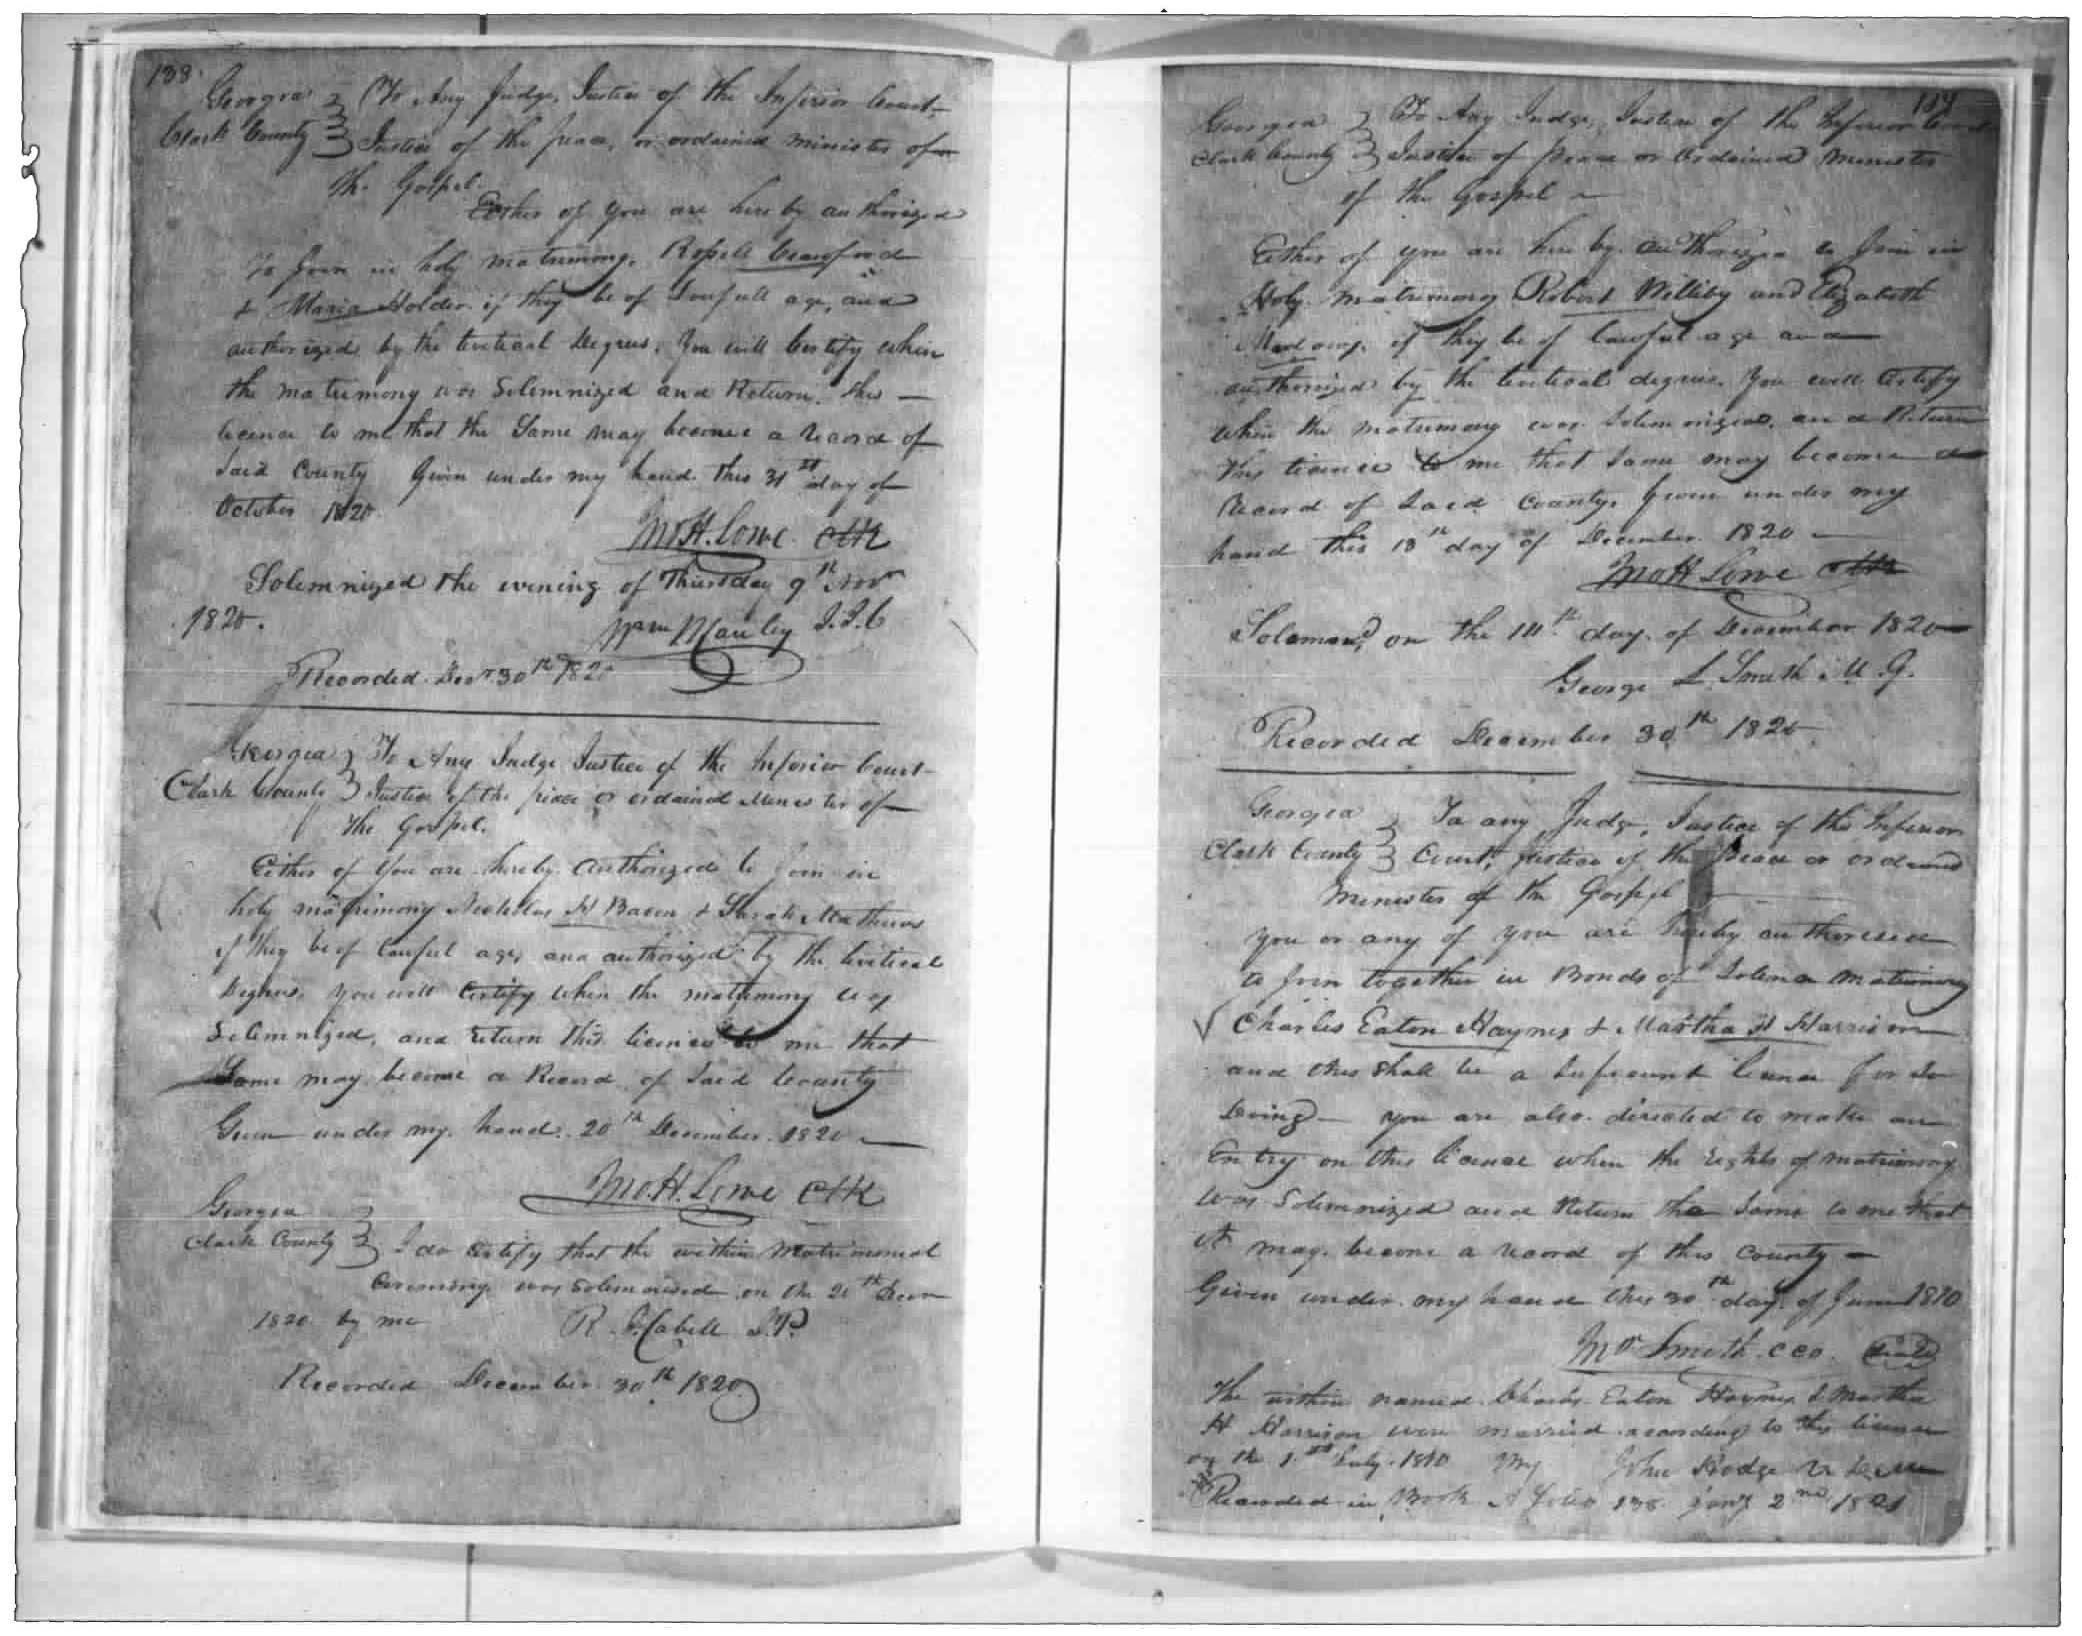 138.
Georgia } To Any Judge, Justice of the Inferior Court
Clark County } Justice of the peace, or ordained minister of
the Gospel.
Either of you are hereby authorized
to Join in holy matrimony, Rossell Crawford
& Maria Holder if they be of Lawfull age, and
authorized by the levitical Degrees. You will Certify when
the matrimony was Solemnized and Return this
licence to me that the Same may become a record of
Said County Given under my hand this 31st day of
October 1820.
Jno H. Lowe Clk
Solemnized the evening of Thursday 9th Nov
1820.
Wm Manley J.I.C
Recorded Decr 30th 1820
Georgia } To Any Judge Justice of the Inferior Court
Clark County } Justice of the peace or ordained Minister of
the Gospel.
Either of You are hereby authorized to Join in
holy matrimony Nicholas H Bacon & Sarah Mathews
if they be of lawful age, and authorized by the levitical
Degrees, you will Certify when the matrimony was
Solemnized, and return this licence to me that
Same may become a Record of Said County
Given under my hand 20th December 1820
Jno. H. Lowe Clk
Georgia
Clark County } I do Certify that the within Matrimonial
Ceremony was solemnised on the 20th Decm
1820 by me R. Cabell J.P.
Recorded December 30th 1820
139
Georgia } To Any Judge, Justice of the Inferior Court
Clark County } Justice of peace or Ordained Minister
of the Gospel
Either of you are hereby authorized to Join in
Holy matrimony Robert Williby and Elizabeth
if they be of lawful age and
authorized by the levitical degrees. You will Certify
when the matrimony was Solemnized, and Return
this licence to me that Same may become a
Record of Said County, Given under my
hand this 13th day of December 1820
Jno H Lowe Clk
on the 14th day of December 1820
George L. Smith M. G.
Recorded December 30th 1820
Georgia } To any Judge, Justice of the Inferior
Clark County } Court, Justice of the peace or ordained
Minister of the Gospel
You or any of you are hereby authorised
to Join together in Bonds of Solemn Matrimony
Charles Eaton Haynes & Martha H Harrison
and this Shall be a Suficiant licence for So
Doing — you are also directed to make an
Entry on this licence when the rights of matrimony
was Solemnized and Return the Same to me that
it may become a record of this County —
Given under my hand this 30th day of June 1810
Smith C C O.
The within named Charles Eaton Haynes & Martha
H Harrison were married according to this licence
on the 1st July 1810 John Hodge
Recorded in Book A folio 138 Jany 2nd 1821